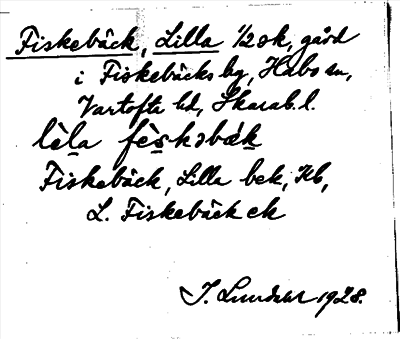 Fiskebäck, Lilla 1/2 sk, gård
i Fiskebäcks by, Habo sn,
Vartofta hd, Skarab. l.
lèla fèskəbæk
Fiskebäck, Lilla bek, Kb,
L. Fiskebäck ek
J. Lundahl 1928.